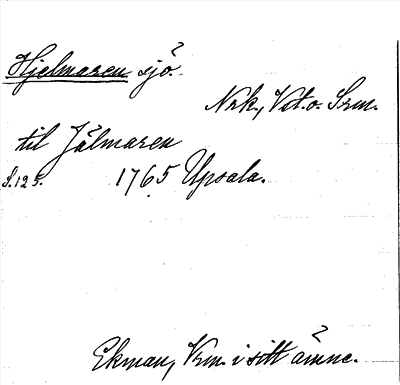 Hjelmaren sjö.
Nrk., Vst. o. Srm.
til Jälmaren
S. 125. 1765 Upsala.
Ekman, Vrm. i sitt ämne.